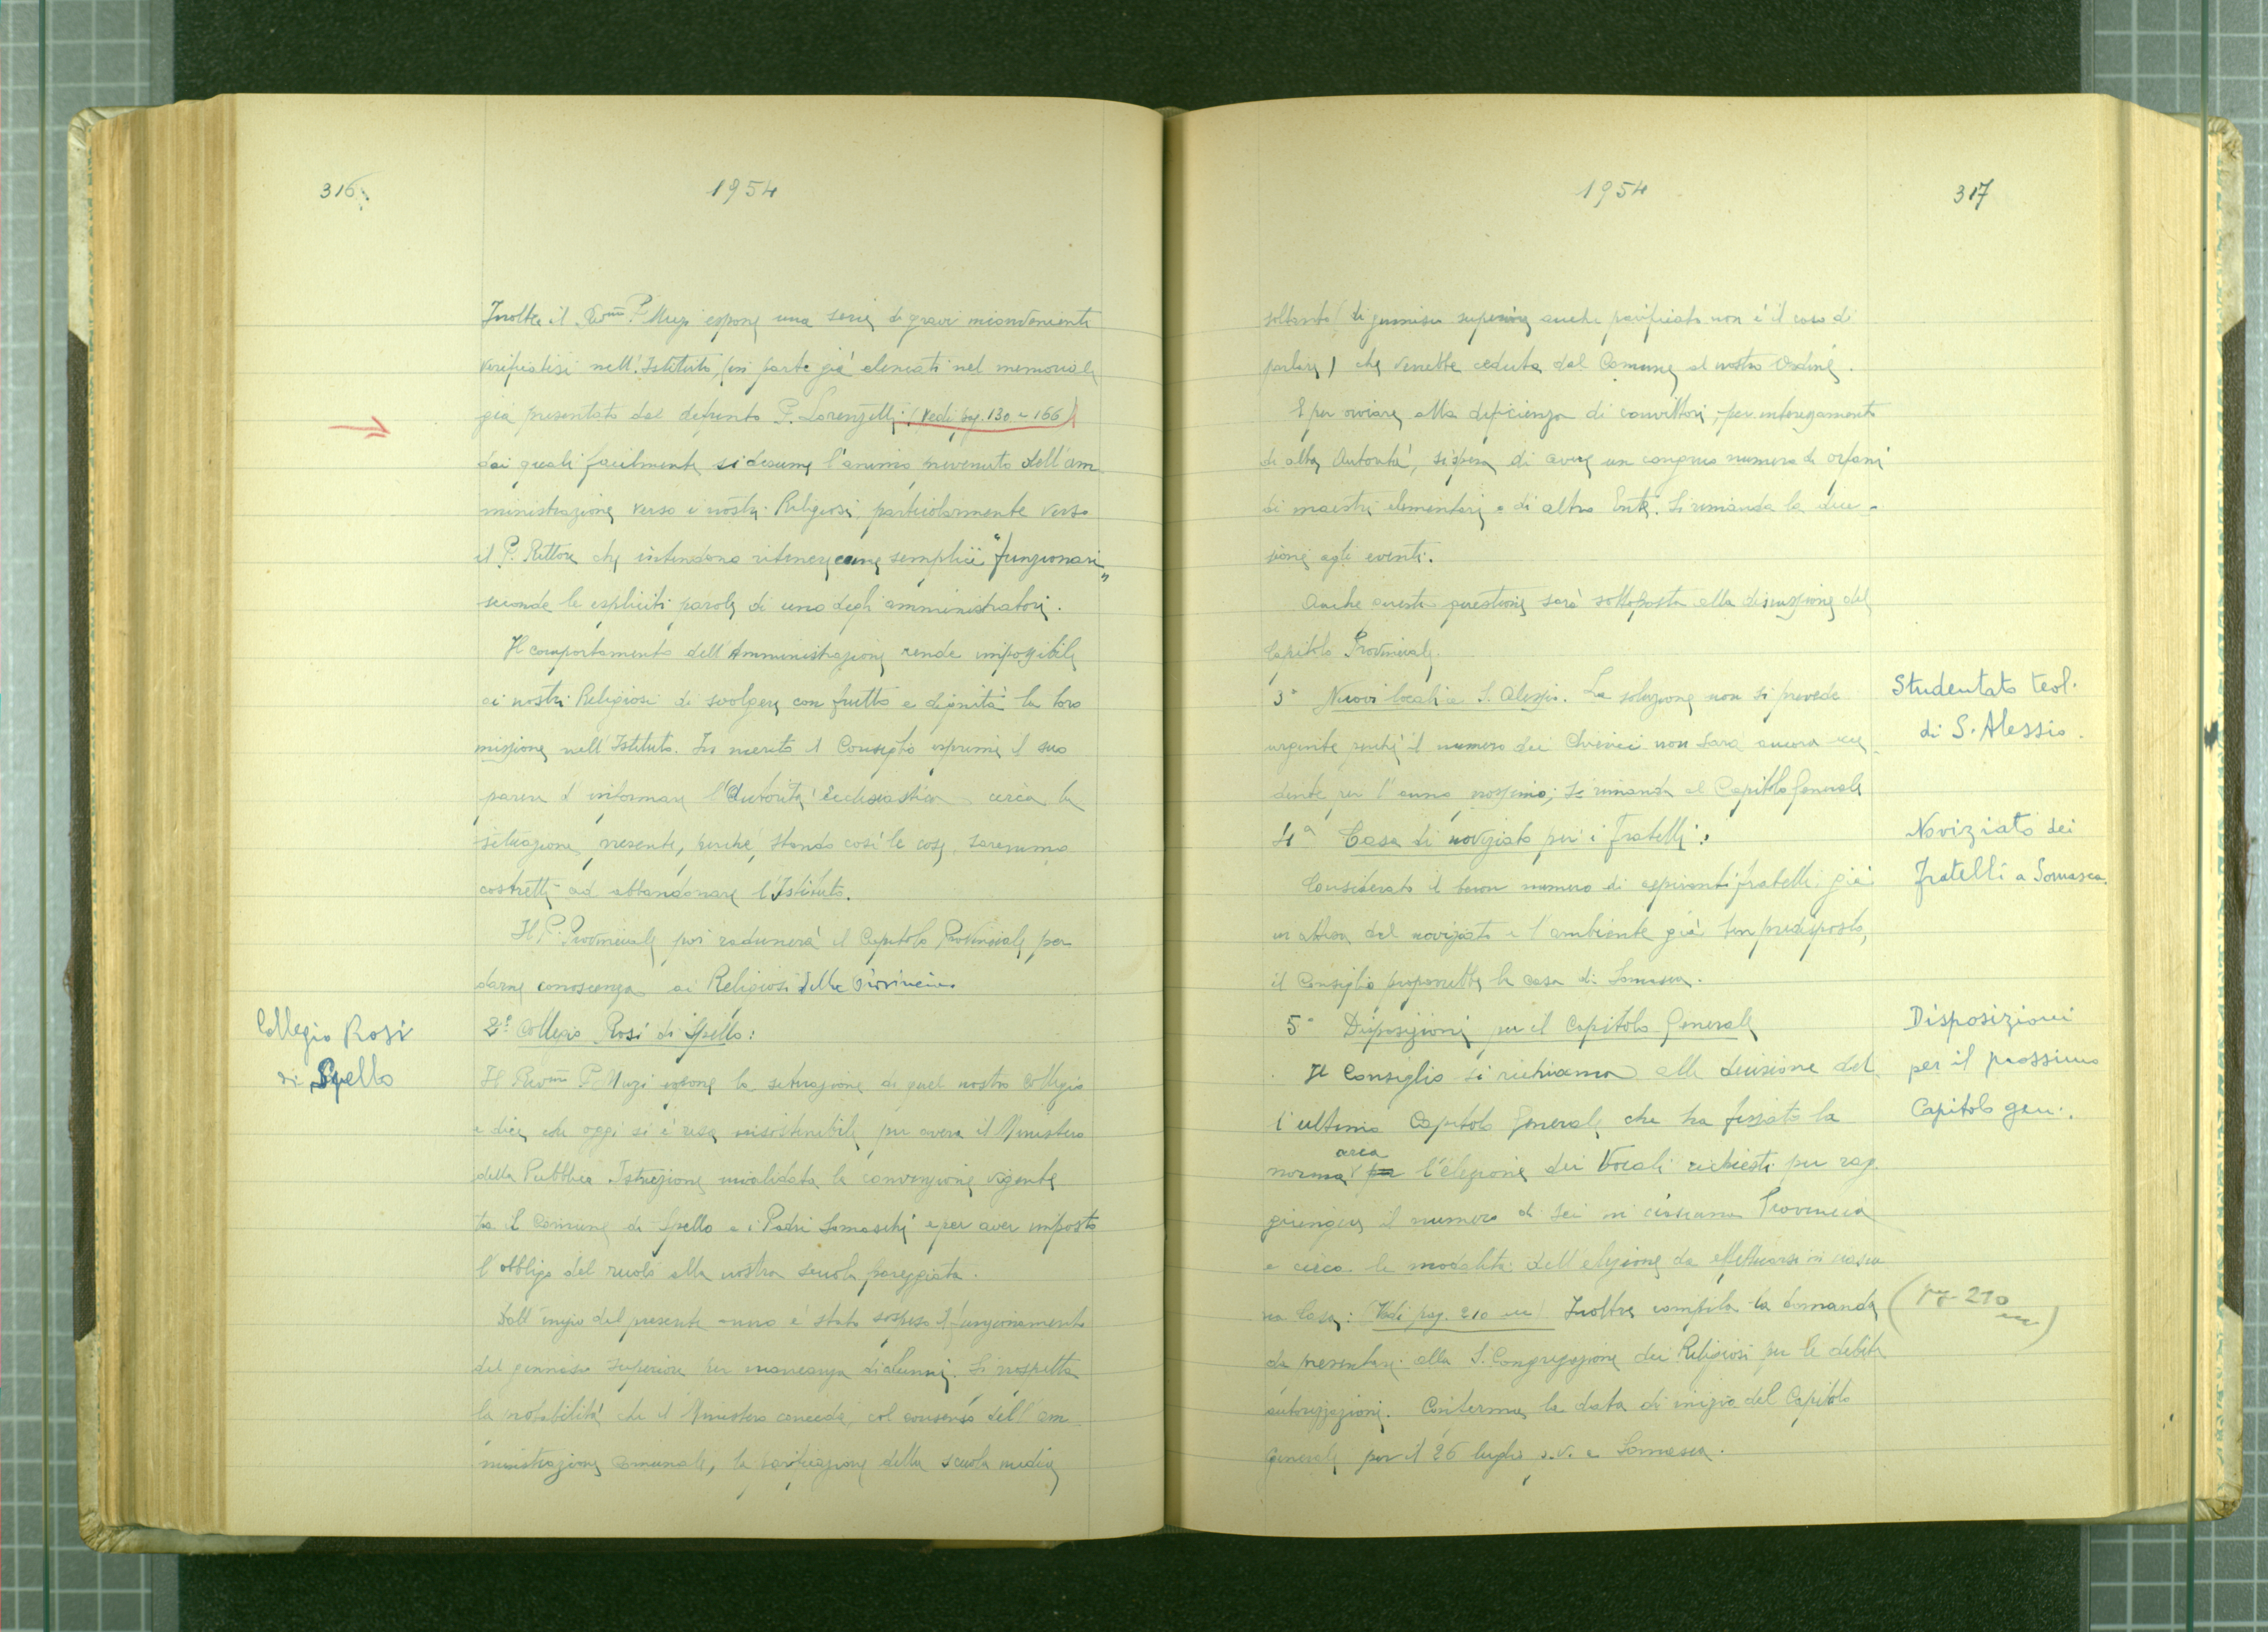 316
1954
Inoltre il Rev.mo P. Muzi espone una serie di gravi inconvenienti
verificatisi nell'Istituto, (in parte già elencati nel memoriale
già presentato dal defunto P. Lorenzetti: (Vedi pag. 130 e 166)
dai quali facilmente si desume l'animo prevenuto dell'am-
ministrazione verso i nostri Religiosi particolarmente verso
il P. Rettore che intendono ritenere come semplici "funzionari"
secondo le espliciti parole di uno degli amministratori.
Il comportamento dell'Amministrazione rende impossibile
ai nostri Religiosi di svolgere con frutto e dignità la loro
missione nell'Istituto. In merito il Consiglio esprime il suo
parere d'informare l'Autorità Ecclesiastica circa la
situazione presente, perché, stando così le cose, saremmo
costretti ad abbandonare l'Istituto.
Il P. Provinciale poi radunerà il Capitolo Provinciale per
darne conoscenza ai Religiosi della Provincia
Collegio Rosi
di Spello
2° Collegio Rosi di Spello:
Il Rev.mo P. Muzi espone la situazione di quel nostro Collegio
e dice che oggi si è resa insostenibile per avere il Ministero
della Pubblica Istruzione invalidata la convenzione vigente
tra il Comune di Spello e i Padri Somaschi e per aver imposto
l'obbligo del ruolo alla nostra scuola pareggiata.
Dall'inizio del presente anno è stato sospeso il funzionamento
del ginnasio superiore per mancanza di alunni. Si prospetta
la probabilità che il Ministero conceda, col consenso dell'am-
ministrazione comunale, la parificazione della scuola media
1954
317
soltanto (di ginnasio superiore anche parificato non è il caso di
parlare) che verrebbe ceduta dal Comune al nostro Ordine.
E per ovviare alla deficienza di convittori, per interessamento
di alte Autorità, si spera di avere un congruo numero di orfani
di maestri elementari o di altro Ente. Si rimanda la deci-
sione agli eventi.
Anche questa questione sarà sottoposta alla discussione del
Capitolo Provinciale.
3° Nuovi locali a S. Alessio. La soluzione non si prevede
urgente perché il numero dei Chierici non sarà ancora ecce-
dente per l'anno prossimo; si rimanda al Capitolo Generale
Studentato teol.
di S. Alessio.
4° Casa di noviziato per i Fratelli:
Considerato il buon numero di aspiranti fratelli già
in attesa del noviziato e l'ambiente già ben predisposto,
il Consiglio proporrebbe la casa di Somasca.
Noviziato dei
fratelli a Somasca.
5° Disposizioni per il Capitolo Generale
Il Consiglio si richiama alla decisione del-
l'ultimo Capitolo Generale che ha fissato la
norma circa per l'elezione dei Vocali richiesti per rag-
giungere il numero di sei in ciascuna Provincia
e circa le modalità dell'elezione da effettuarsi in ciascu-
na Casa: (Vedi pag. 210 Inoltre compila la domanda
da presentare alla S. Congregazione dei Religiosi per le debite
autorizzazioni. Conferma la data di inizio del Capitolo
Generale per il 26 luglio a Somasca.
Disposizioni
per il prossimo
Capitolo gen.
(pag. 210